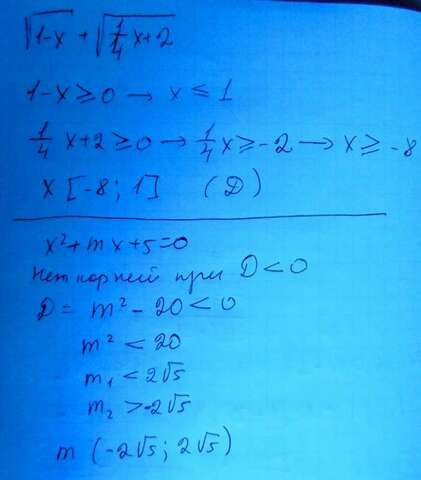 √1-x + √1/4 x+2
1-x ≥ 0 → x ≤ 1
1/4 x+2 ≥ 0 → 1/4 x ≥ -2 → x ≥ -8
x [-8; 1] (D)
x² + mx + 5 = 0
Нет корней при D < 0
D = m² - 20 < 0
m² < 20
m₁ < 2√5
m₂ > -2√5
m (-2√5; 2√5)